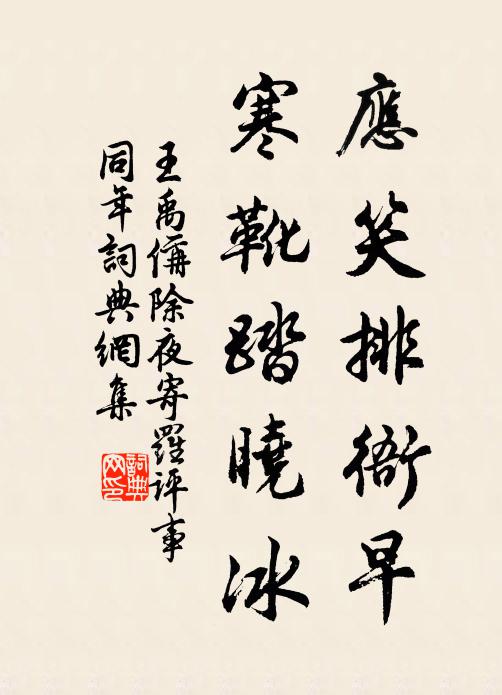 應笑排衙早
寒靴踏曉冰
王禹偁除夜寄羅評事
同年詞典網集
詞典
网印